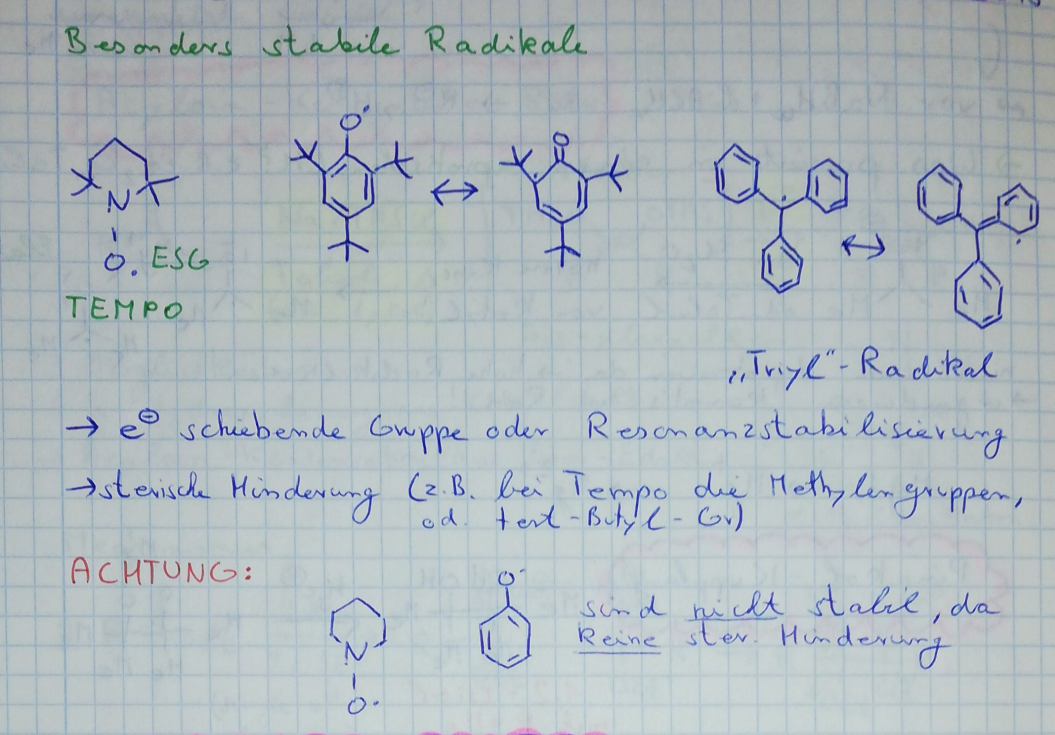 Besonders stabile Radikale
O·
O
N
O. ESG
TEMPO
„Triyl"-Radikal
→ e⊖ schiebende Gruppe oder Resonanzstabilisierung
→ sterische Hinderung (z.B. bei Tempo die Methylengruppen,
od. tert-Butyl-Gr)
ACHTUNG:
O·
sind nicht stabil, da
keine ster. Hinderung
N
O·